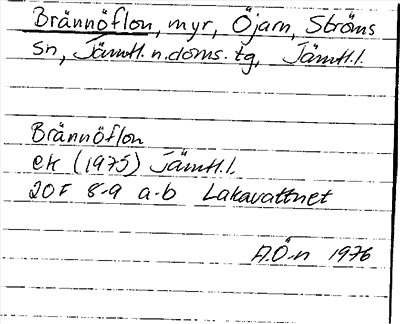 Brännöflon, myr, Öjarn, Ströms
sn, Jämtl. n. doms. tg, Jämtl. l.
Brännöflon
ek (1975) Jämtl. l.
20F 8-9 a-b Lakavattnet
A.Ö-n 1976